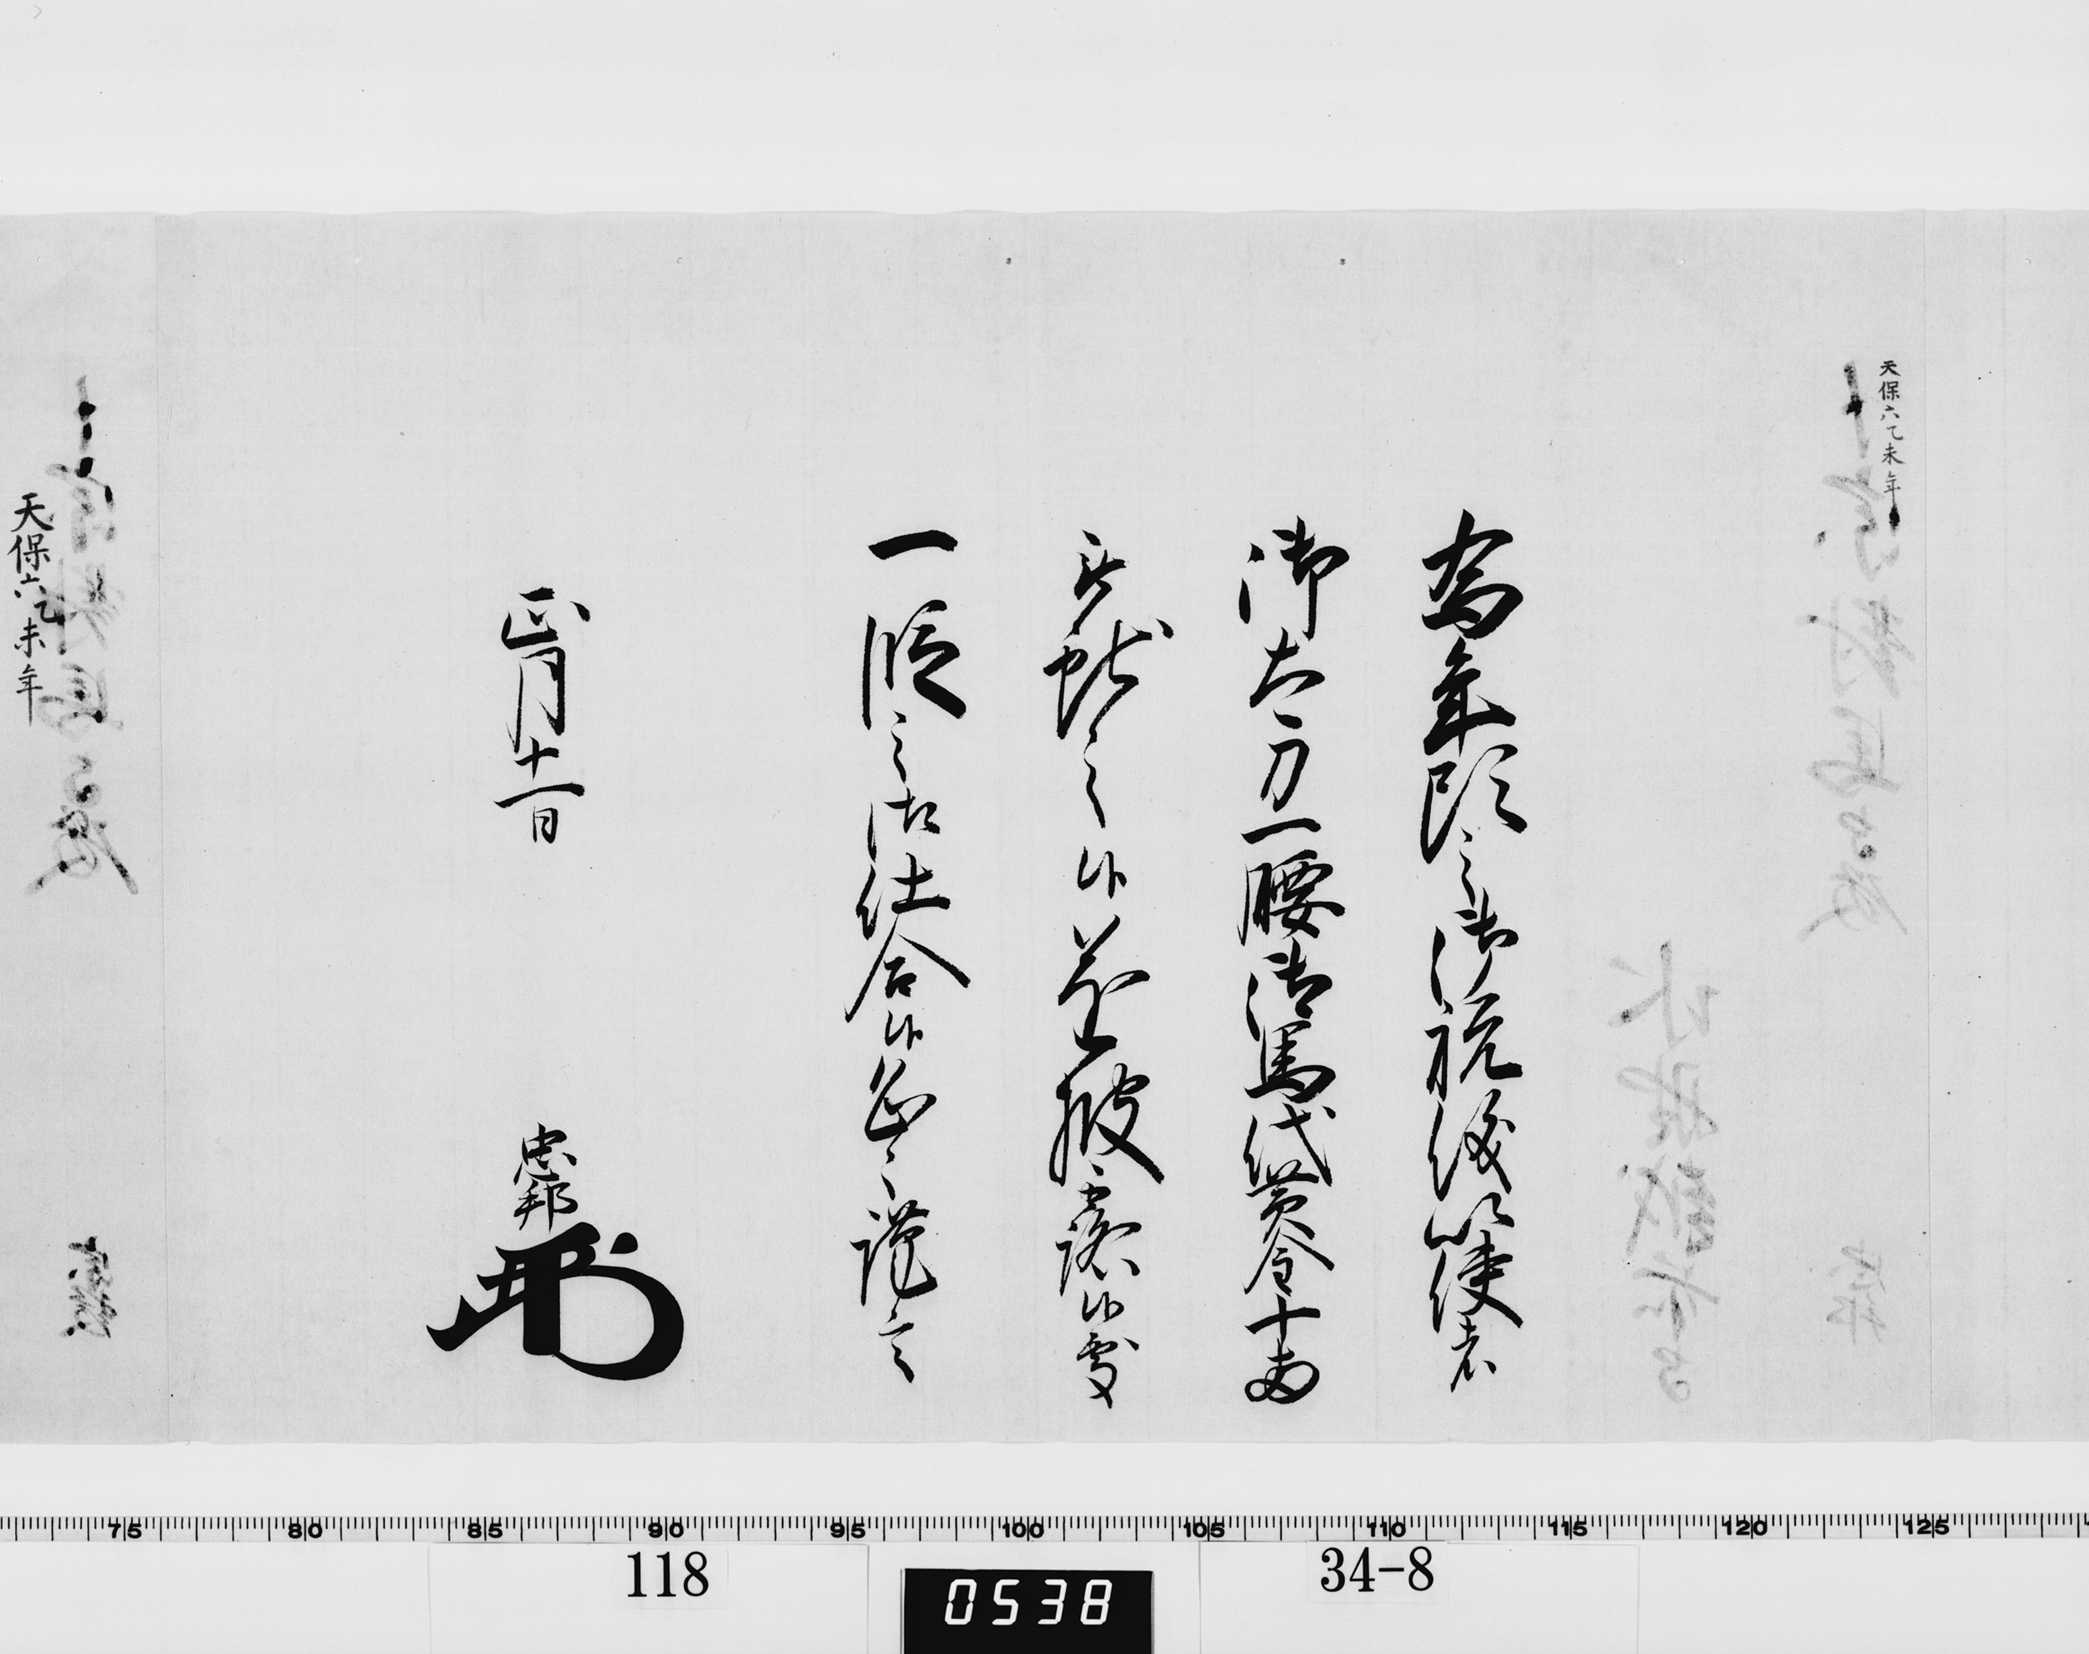 天保六乙未年
為年頭之御祝儀以使者
御太刀一腰御馬代黄金十両
献之候
披露候処
一段之御仕合候恐々謹言
正月十一日
忠邦
天保六乙未年
75 80 85 90 95 100 105 110 115 120 125
118
0538
34-8